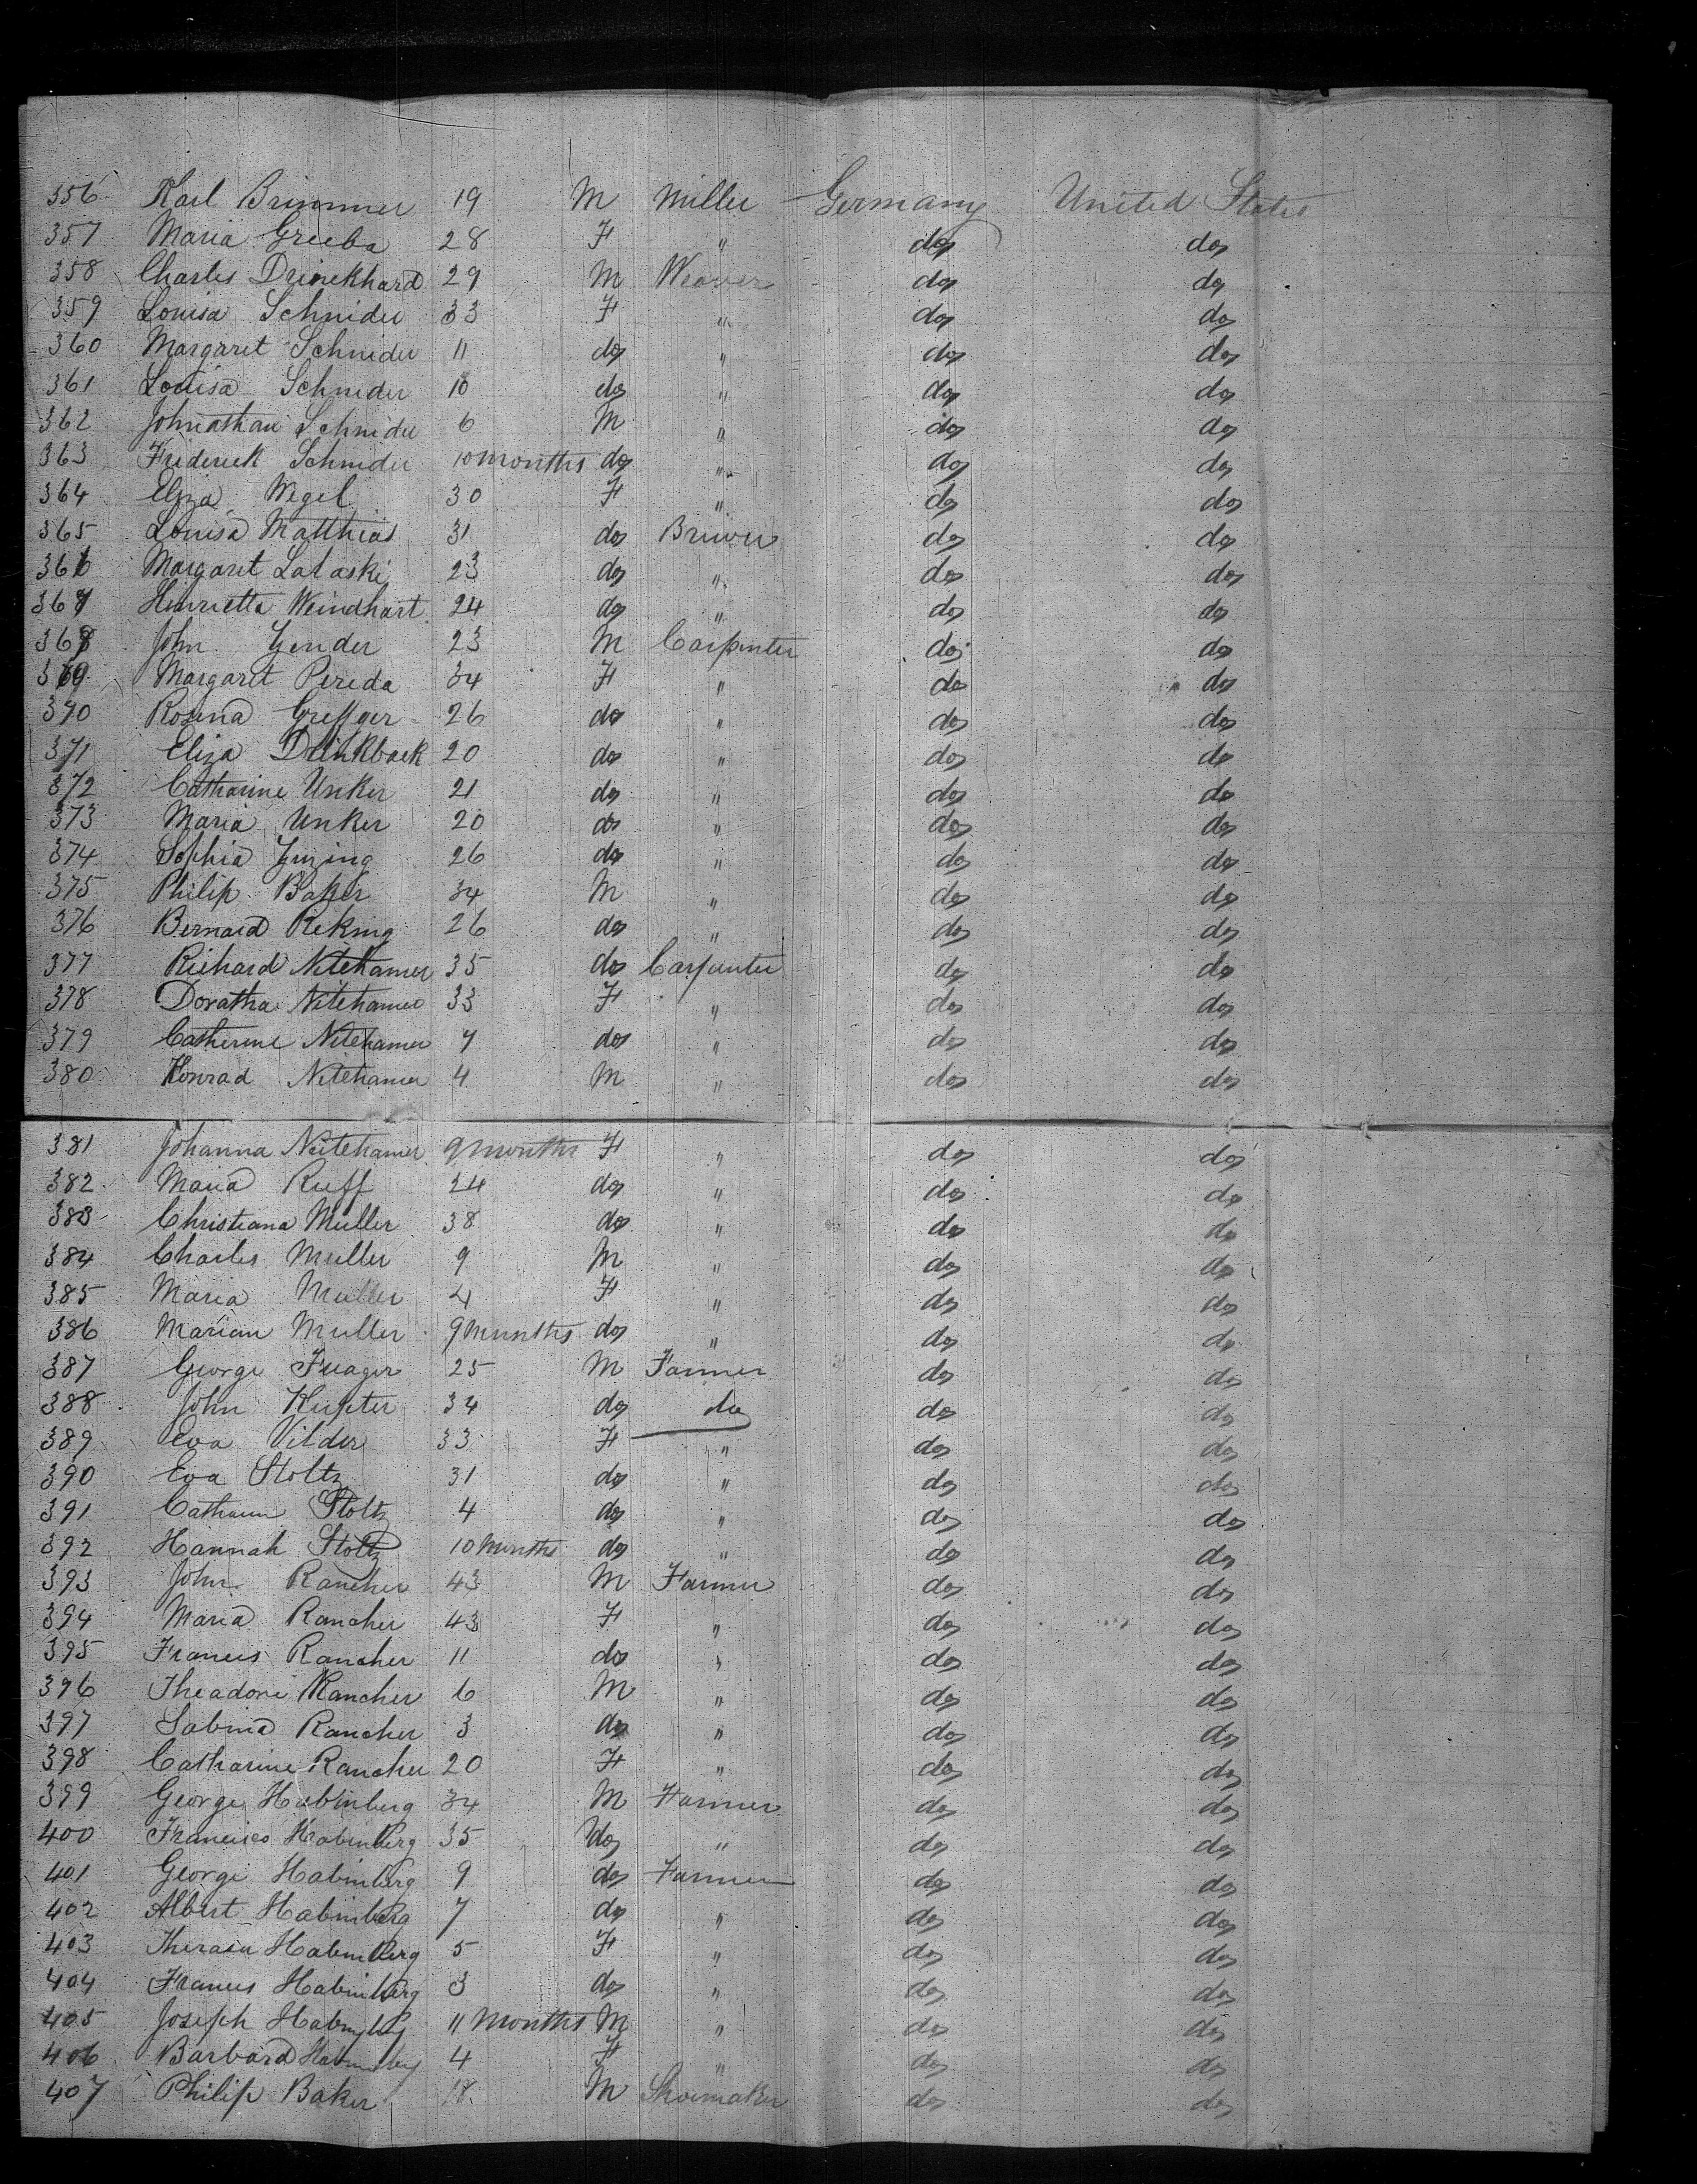 356 Karl Brimmer 19 M Miller Germany United States
357 Maria Greeba 28 F " do do
358 Charles Drinekhard 29 M Weaver do do
359 Louisa Schnider 33 F " do do
360 Margaret Schnider 11 do " do do
361 Louisa Schnider 10 do " do do
362 Johnathan Schnider 6 M " do do
363 Frederick Schnider 10 months do " do do
364 Eliza Wegel 30 F " do do
365 Louisa Matthias 31 do Briwer do do
366 Margaret Lataski 23 do " do do
367 Henrietta Weindhart 24 do " do do
368 John Yender 23 M Carpenter do do
369 Margaret Pereda 34 F " do do
370 Rosina Greffger 26 do " do do
371 Eliza Drinkback 20 do " do do
372 Catharine Unker 21 do " do do
373 Maria Unker 20 do " do do
374 Sophia 26 do " do do
375 Philip Baker 34 M " do do
376 Bernard Reking 26 do " do do
377 Richard Nitehamer 35 do Carpenter do do
378 Doratha Nitehamer 33 F " do do
379 Catherine Nitehamer 7 do " do do
380 Konrad Nitehamer 4 M " do do
381 Johanna Nitehamer 9 months F " do do
382 Maria Rueff 24 do " do do
383 Christiana Muller 38 do " do do
384 Charles Muller 9 M " do do
385 Maria Muller 4 F " do do
386 Marian Muller 9 munths do " do do
387 George Fuager 25 M Farmer do do
388 John Kupter 34 do do do do
389 Eva Vilder 33 F " do do
390 Eva Stoltz 31 do " do do
391 Catharin Stoltz 4 do " do do
392 Hannah Stoltz 10 munths do " do do
393 John Rancher 43 M Farmer do do
394 Maria Rancher 43 F " do do
395 Frances Rancher 11 do " do do
396 Theadore Rancher 6 M " do do
397 Sabina Rancher 3 do " do do
398 Catharine Rancher 20 F " do do
399 George Habinberg 34 M Farmer do do
400 Francisco Habinberg 35 do " do do
401 George Habinberg 9 do Farmer do do
402 Albert Habinberg 7 do " do do
403 Therasa Habinberg 5 F " do do
404 Frances Habinberg 3 do " do do
405 Joseph Habinberg 11 months M " do do
406 Barbara Habinberg 4 F " do do
407 Philip Baker 18 M Shoemaker do do